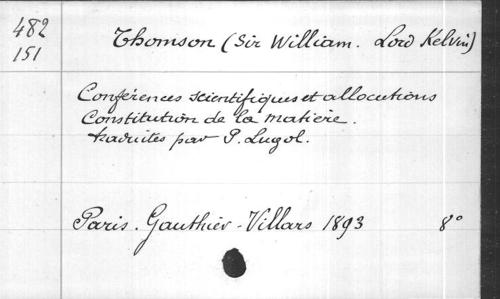 482 Thomson (Sir William. Lord Kelvin)
151
Conférences scientifiques et allocutions
Constitution de la matière.
traduites par P. Lugol.
Paris. Gauthier-Villars 1893 8°